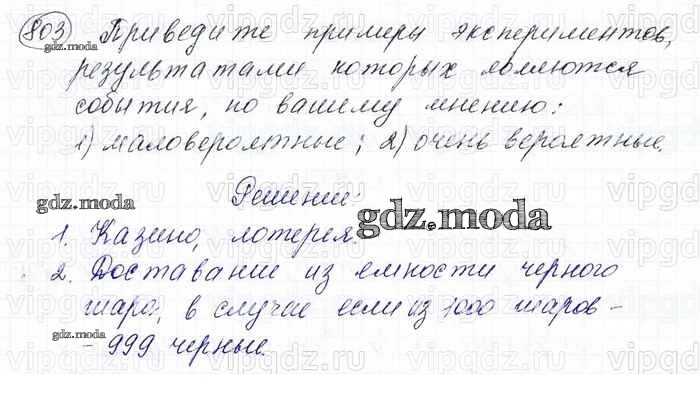 803) Приведите примеры экспериментов,
gdz.moda
результатами которых являются
события, по вашему мнению:
1) маловероятные; 2) очень вероятные.
Решение:
gdz.moda
gdz.moda
1. Казино, лотерея.
2. Доставание из емкости черного
шара, в случае если из 1000 шаров -
gdz.moda
- 999 черные.